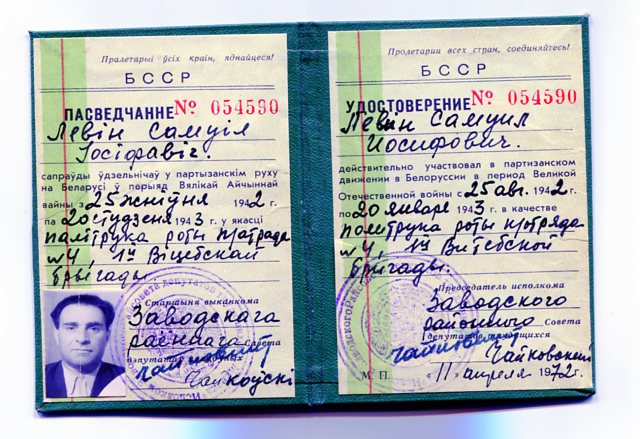 Пралетарыі ўсіх краін, яднайцеся!
БССР
ПАСВЕДЧАННЕ № 054590
Левін Самуіл
Іосіфавіч.
сапраўды ўдзельнічаў у партызанскім руху
на Беларусі ў перыяд Вялікай Айчыннай
вайны з 25 жніўня 1942 г.
па 20 студзеня 1943 г. у якасці
палітрука роты атрада
№4, 1й Віцебскай
брыгады.
Старшыня выканкома
Заводскага
раённага Савета
дэпутатаў працоўных
Чайкоўскі
Пролетарии всех стран, соединяйтесь!
БССР
УДОСТОВЕРЕНИЕ № 054590
Левин Самуил
Иосифович.
действительно участвовал в партизанском
движении в Белоруссии в период Великой
Отечественной войны с 25 авг. 1942 г.
по 20 января 1943 г. в качестве
политрука роты отряда
№4, 1й Витебской
бригады.
Председатель исполкома
Заводского
районного Совета
депутатов трудящихся
Чайковский
М. П. 11 апреля 1972 г.